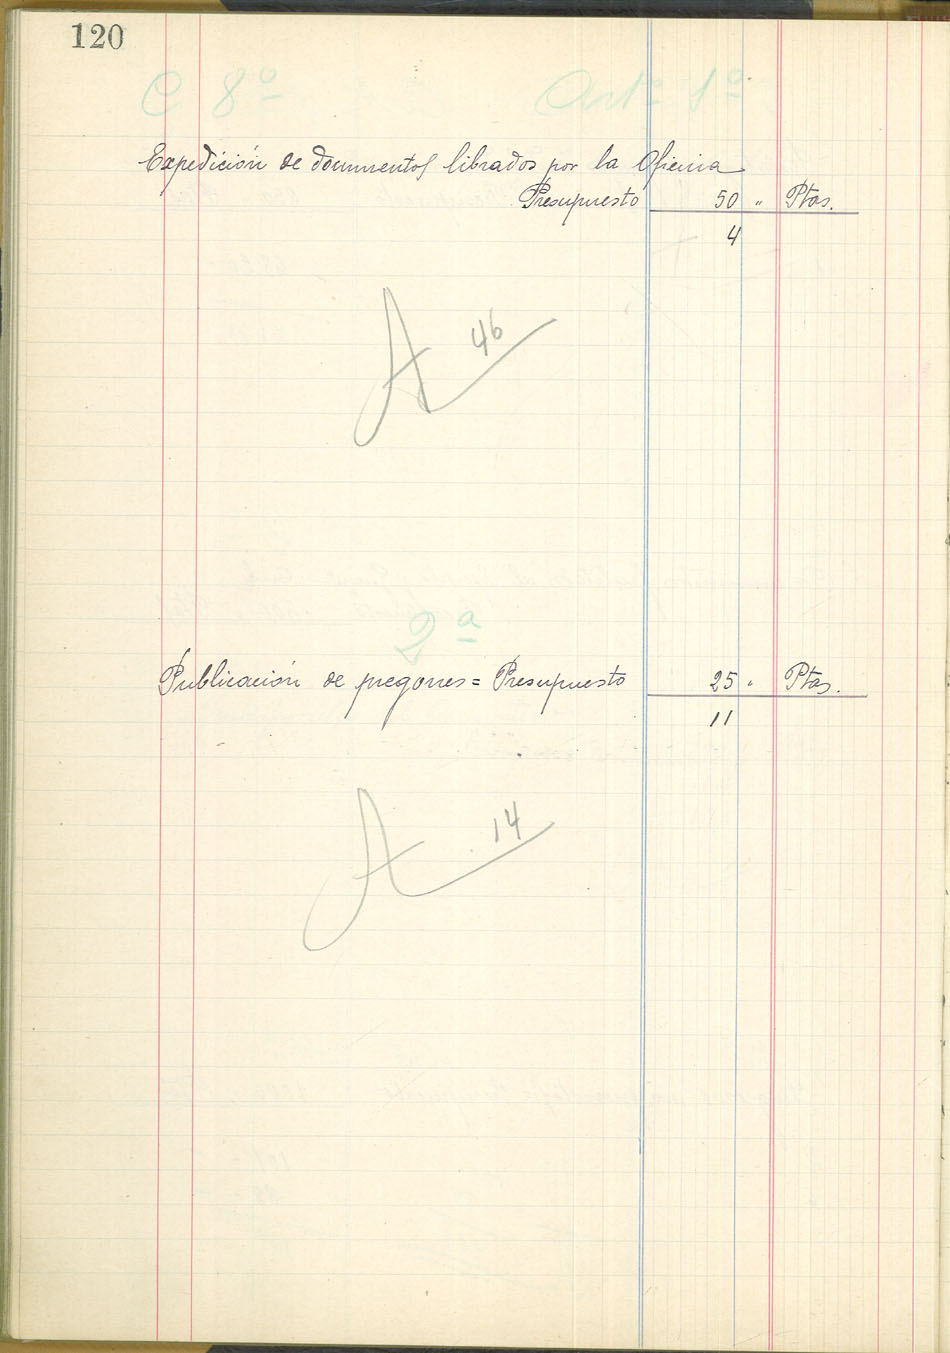 120
C 8º Artº 1º
Expedición de documentos librados por la Oficina
Presupuesto 50 " Ptas.
4
A 46
2ª
Publicación de pregones = Presupuesto 25 " Ptas.
11
A 14